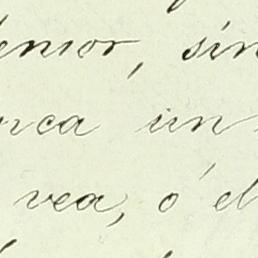 enior, sin
nca un
vea, ó el